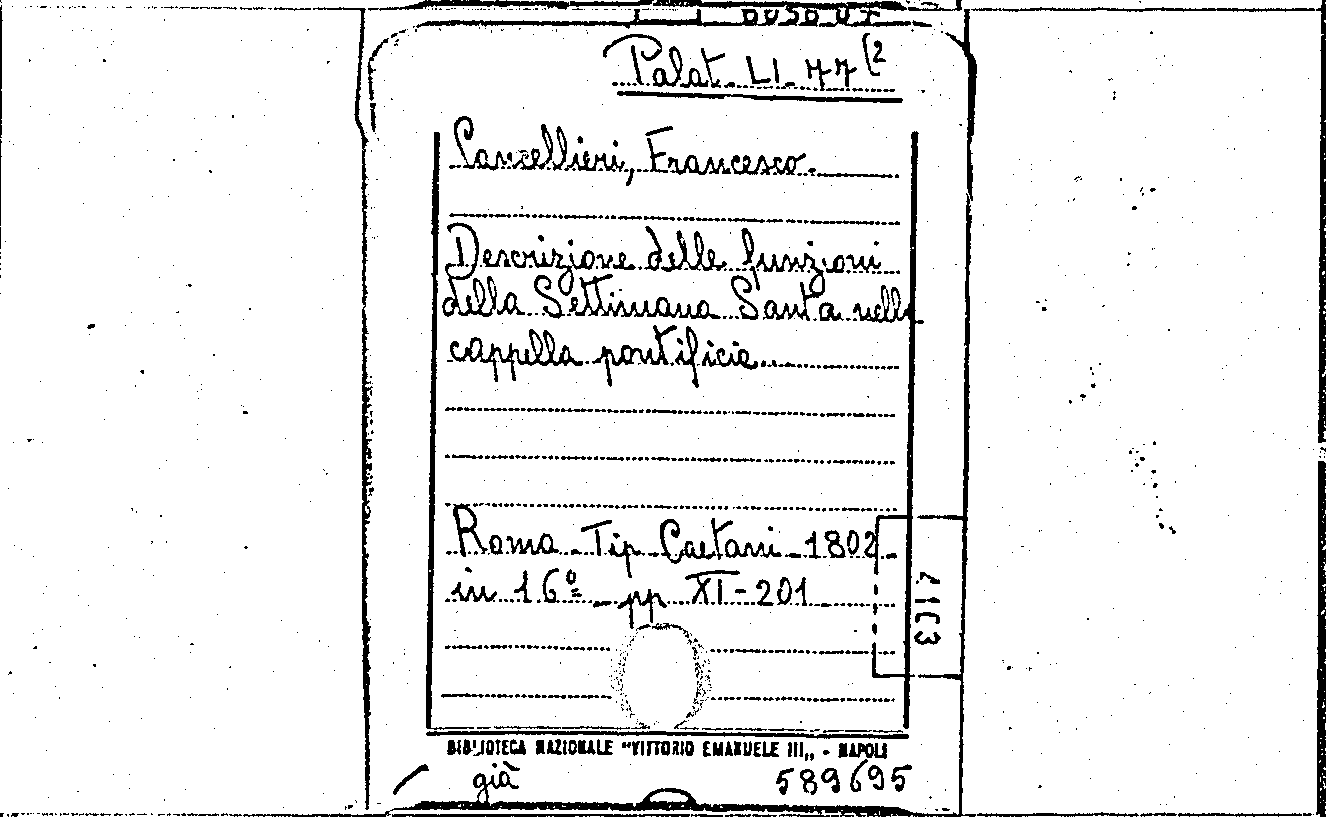 Palat. LI. 77 (2
Cancellieri, Francesco.
Descrizione delle funzioni
della Settimana Santa nella
cappella pontificia.
Roma - Tip Caetani - 1802 -
in 16º - pp XI - 201
BIBLIOTECA NAZIONALE "VITTORIO EMANUELE III„ - NAPOLI
già 589695